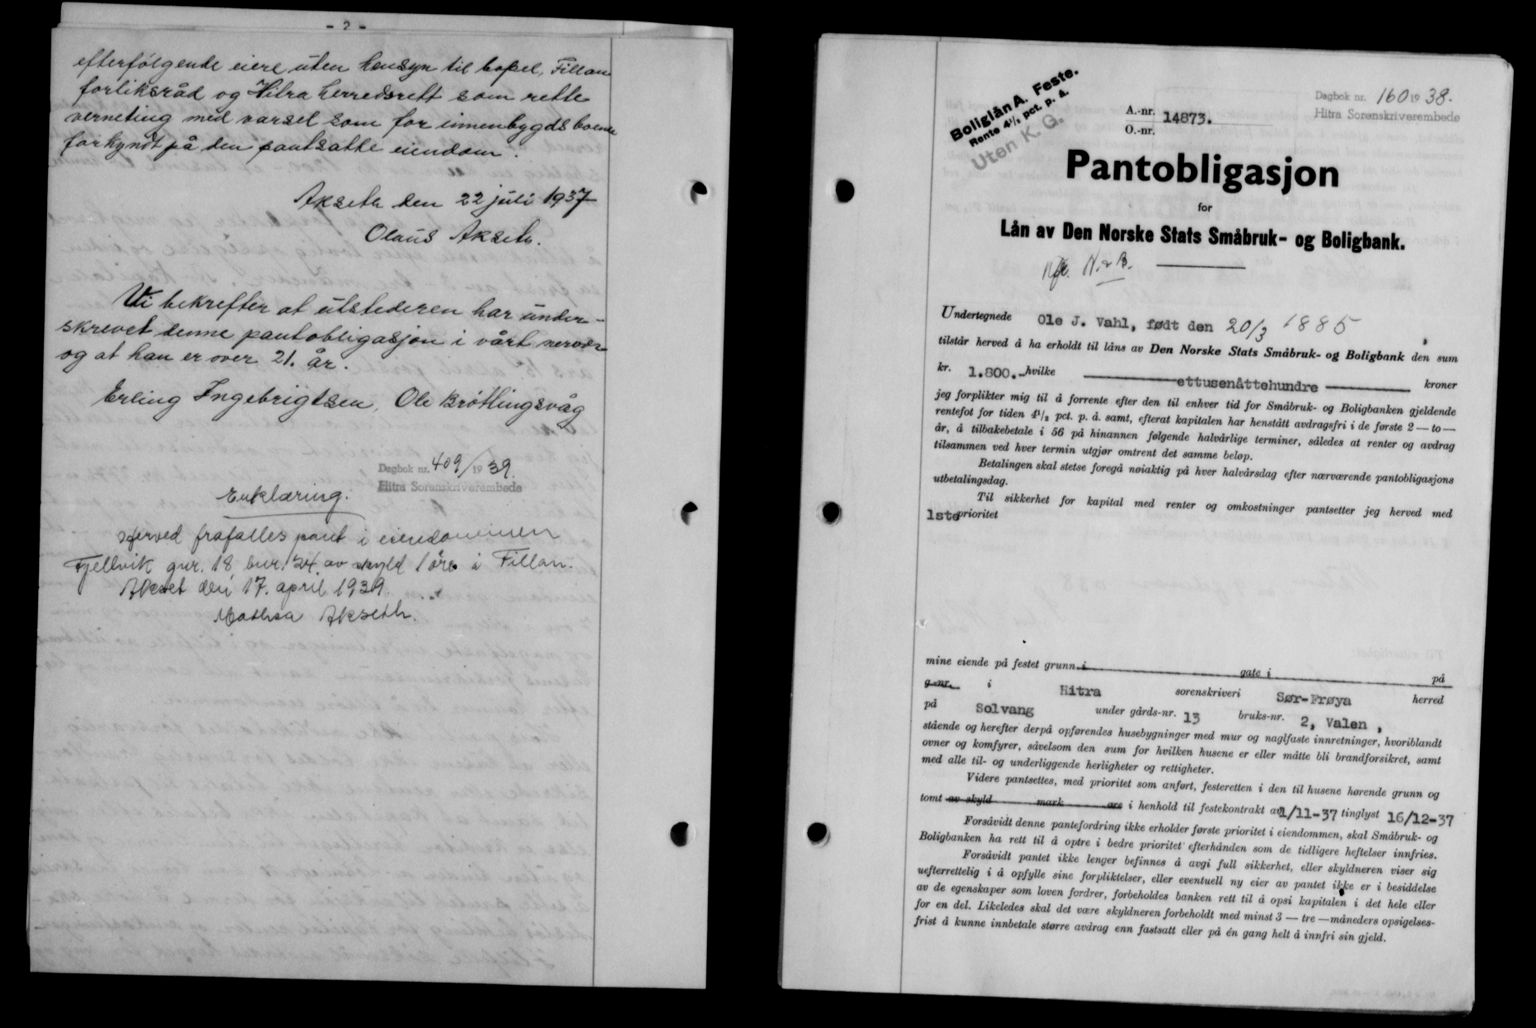 - 2 -
efterfølgende eiere uten hensyn til bopel, Fillan
forliksråd og Hitra herredsrett som rette
verneting med varsel som for innenbygds boende
forkyndt på den pantsatte eiendom.
Akseth den 22 juli 1937
Olaus Akseth.
Vi bekrefter at utstederen har under-
skrevet denne pantobligasjon i vårt nærvær
og at han er over 21. år.
Erling Ingebrigtsen, Ole Brøttingsvåg
Dagbok nr. 409/1939.
Hitra Sorenskriverembede
Erklæring.
Herved frafalles pant i eiendommen
Fjellvik gnr. 18 bnr. 34. av skyld 1 øre i Fillan.
Akset den 17. april 1939.
Mathea Akseth.
Boliglån A. Feste.
Rente 4 1/2 pct. p. å.
Uten K. G.
Dagbok nr. 160 1938.
Hitra Sorenskriverembede
A.-nr. 14873.
O.-nr.
Pantobligasjon
for
Lån av Den Norske Stats Småbruk- og Boligbank.
N. & B.
Undertegnede Ole J. Vahl, født den 20/3 1885
tilstår herved å ha erholdt til låns av Den Norske Stats Småbruk- og Boligbank den sum
kr. 1.800.- hvilke ettusenåttehundre kroner
jeg forplikter mig til å forrente efter den til enhver tid for Småbruk- og Boligbanken gjeldende
rentefot for tiden 4 1/2 pct. p. å. samt, efterat kapitalen har henstått avdragsfri i de første 2 — to —
år, å tilbakebetale i 56 på hinannen følgende halvårlige terminer, således at renter og avdrag
tilsammen ved hver termin utgjør omtrent det samme beløp.
Betalingen skal stetse foregå nøiaktig på hver halvårsdag efter nærværende pantobligasjons
utbetalingsdag.
Til sikkerhet for kapital med renter og omkostninger pantsetter jeg herved med
1ste prioritet
mine eiende på festet grunn i gate i på
g.-nr. i Hitra sorenskriveri Sør-Frøya herred
på Solvang under gårds-nr. 13 bruks-nr. 2, Valen,
stående og herefter derpå opførendes husebygninger med mur og naglfaste innretninger, hvoriblandt
ovner og komfyrer, såvelsom den sum for hvilken husene er eller måtte bli brandforsikret, samt
med alle til- og underliggende herligheter og rettigheter.
Videre pantsettes, med prioritet som anført, festeretten i den til husene hørende grunn og
tomt av skyld mark øre i henhold til festekontrakt av 1/11-37 tinglyst 16/12-37
Forsåvidt denne pantefordring ikke erholder første prioritet i eiendommen, skal Småbruk- og
Boligbanken ha rett til å optre i bedre prioritet efterhånden som de tidligere heftelser innfries.
Forsåvidt pantet ikke lenger befinnes å avgi full sikkerhet, eller skyldneren viser sig
uefterrettelig i å opfylle sine forpliktelser, eller eventuell ny eier av pantet ikke er i besiddelse
av de egenskaper som loven fordrer, forbeholdes banken rett til å opsi kapitalen i det hele eller
for en del. Likeledes skal det være skyldneren forbeholdt med minst 3 — tre — måneders opsigelses-
frist å kunne innbetale større avdrag enn fastsatt eller på én gang helt å innfri sin gjeld.